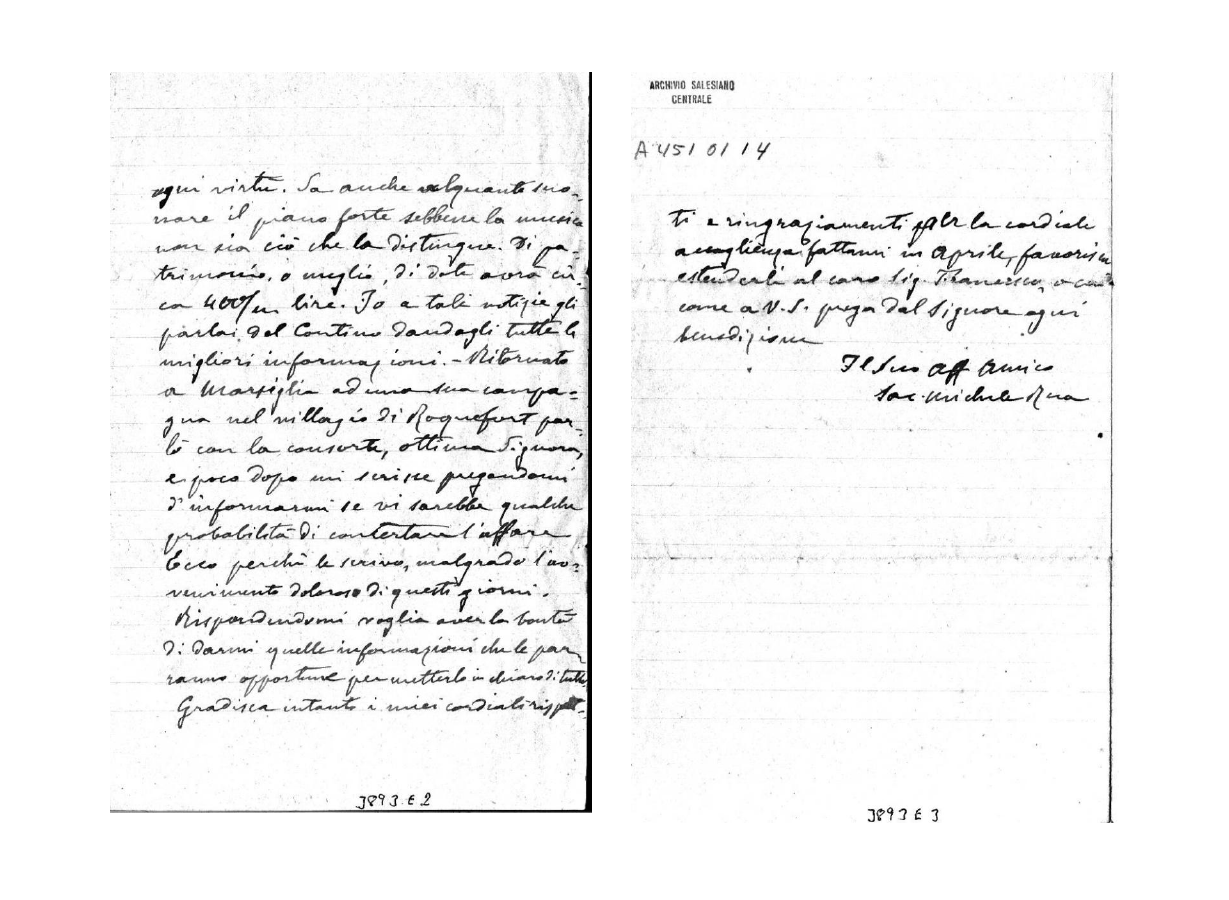 ogni virtù. Sa anche alquanto suo-
nare il piano forte sebbene la musica
non sia ciò che la distingue. Di pa-
trimonio, o meglio, di dote avrà cir-
ca 400/m lire. Io a tali notizie gli
parlai del Contino dandogli tutte le
migliori informazioni. - Ritornato
a Marsiglia ad una sua campa=
gna nel villagio di Roquefort par-
lò con la consorte, ottima Signora,
e poco dopo mi scrisse pregandomi
d'informarmi se vi sarebbe qualche
probabilità di contertare l'affare
Ecco perchè le scrivo, malgrado l'av=
venimento doloroso di questi giorni.
Rispondendomi voglia aver la bontà
di darmi quelle informazioni che le par-
ranno opportune per metterlo in chiaro di tutto.
Gradisca intanto i miei cordiali rispet-
3893 E 2
ARCHIVIO SALESIANO
CENTRALE
A 451 01 14
ti e ringraziamenti per la cordiale
accoglienza fattami in Aprile, favorisca
estenderli al caro Sig. Francesco, a cui
come a V. S. prega dal Signore ogni
benedizione
Il Suo aff amico
Sac. Michele Rua
3893 E 3